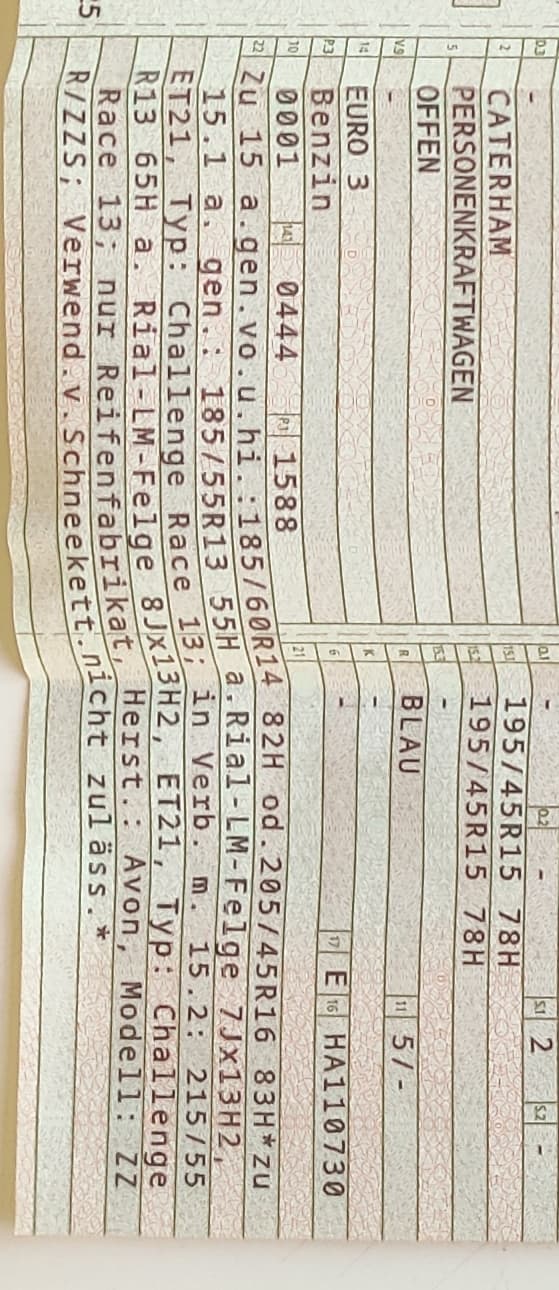 D.3 -
2 CATERHAM
5 PERSONENKRAFTWAGEN
OFFEN
V.9 -
14 EURO 3
P.3 Benzin
10 0001 14.1 0444 P.1 1588
O.1 - O.2 - S.1 2 S.2 -
15.1 195/45R15 78H
15.2 195/45R15 78H
15.3 -
R BLAU 11 5/-
K -
6 - 17 E 16 HA110730
21
22 Zu 15 a.gen.vo.u.hi.:185/60R14 82H od.205/45R16 83H*zu
15.1 a. gen.: 185/55R13 55H a.Rial-LM-Felge 7Jx13H2,
ET21, Typ: Challenge Race 13; in Verb. m. 15.2: 215/55
R13 65H a. Rial-LM-Felge 8Jx13H2, ET21, Typ: Challenge
Race 13; nur Reifenfabrikat, Herst.: Avon, Modell: ZZ
R/ZZS; Verwend.v.Schneekett.nicht zuläss.*